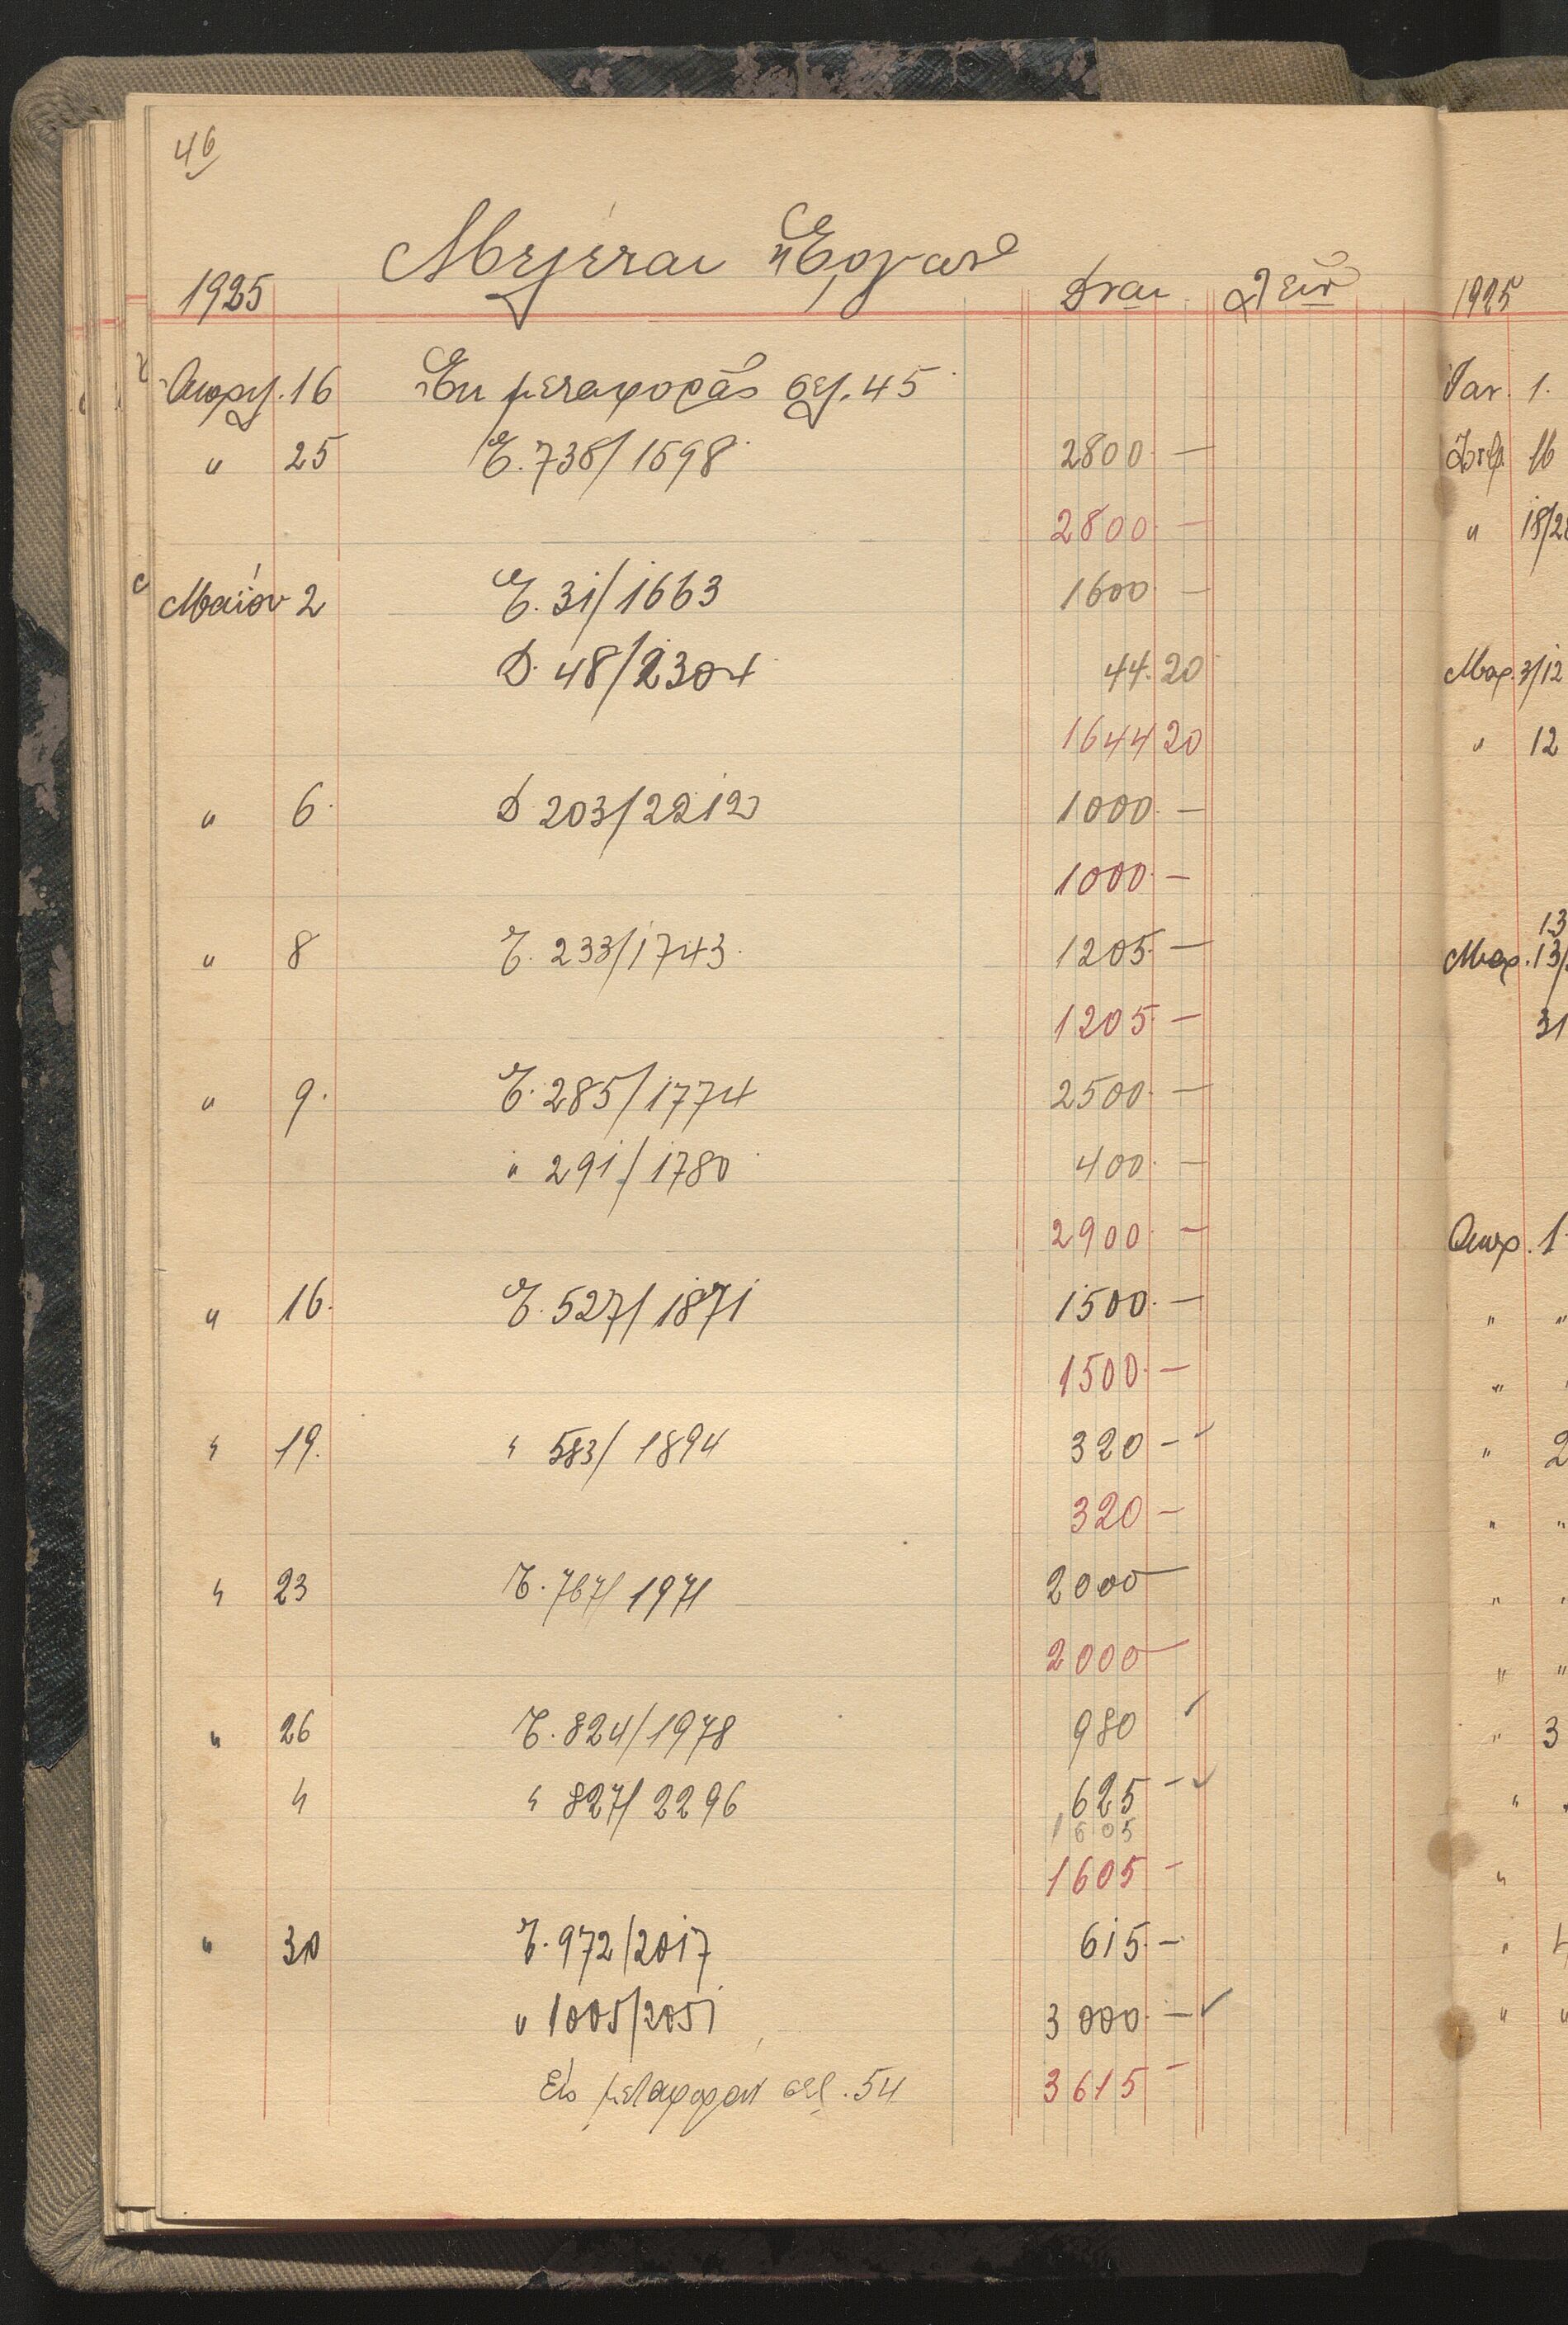 46
Μελέται Ἔργων
1925 Δναι Λειν
Ἀπριλ. 16 Ἐκ μεταφορᾶς σελ. 45
" 25 Ε. 738/1598 2800 —
2800 —
Μαΐου 2 Ε. 31/1663 1600 —
Δ. 48/2304 44.20
1644 20
" 6. Δ 203/2212 1000 —
1000 —
" 8 Ε. 233/1743 1205 —
1205 —
" 9. Ε. 285/1774 2500 —
" 291/1780 400 —
2900 —
" 16. Ε. 527/1871 1500 —
1500 —
" 19. " 583/1894 320 —
320 —
" 23 Ε. 767/1971 2000 —
2000 —
" 26 Ε. 824/1978 980
" " 827/2296 625 —
1605
1605 —
" 30 Ε. 972/2017 615 —
" 1005/2051 3000 —
Εἰς μεταφοράν σελ. 54 3615 —
1925
Ἰαν. 1.
16
" 18/2
Μαρ. 3/12
" 12
13
Μαρ. 13/
31
Ἀπρ. 1
" "
"
" 2
" "
"
" "
" 3
"
"
"
" "